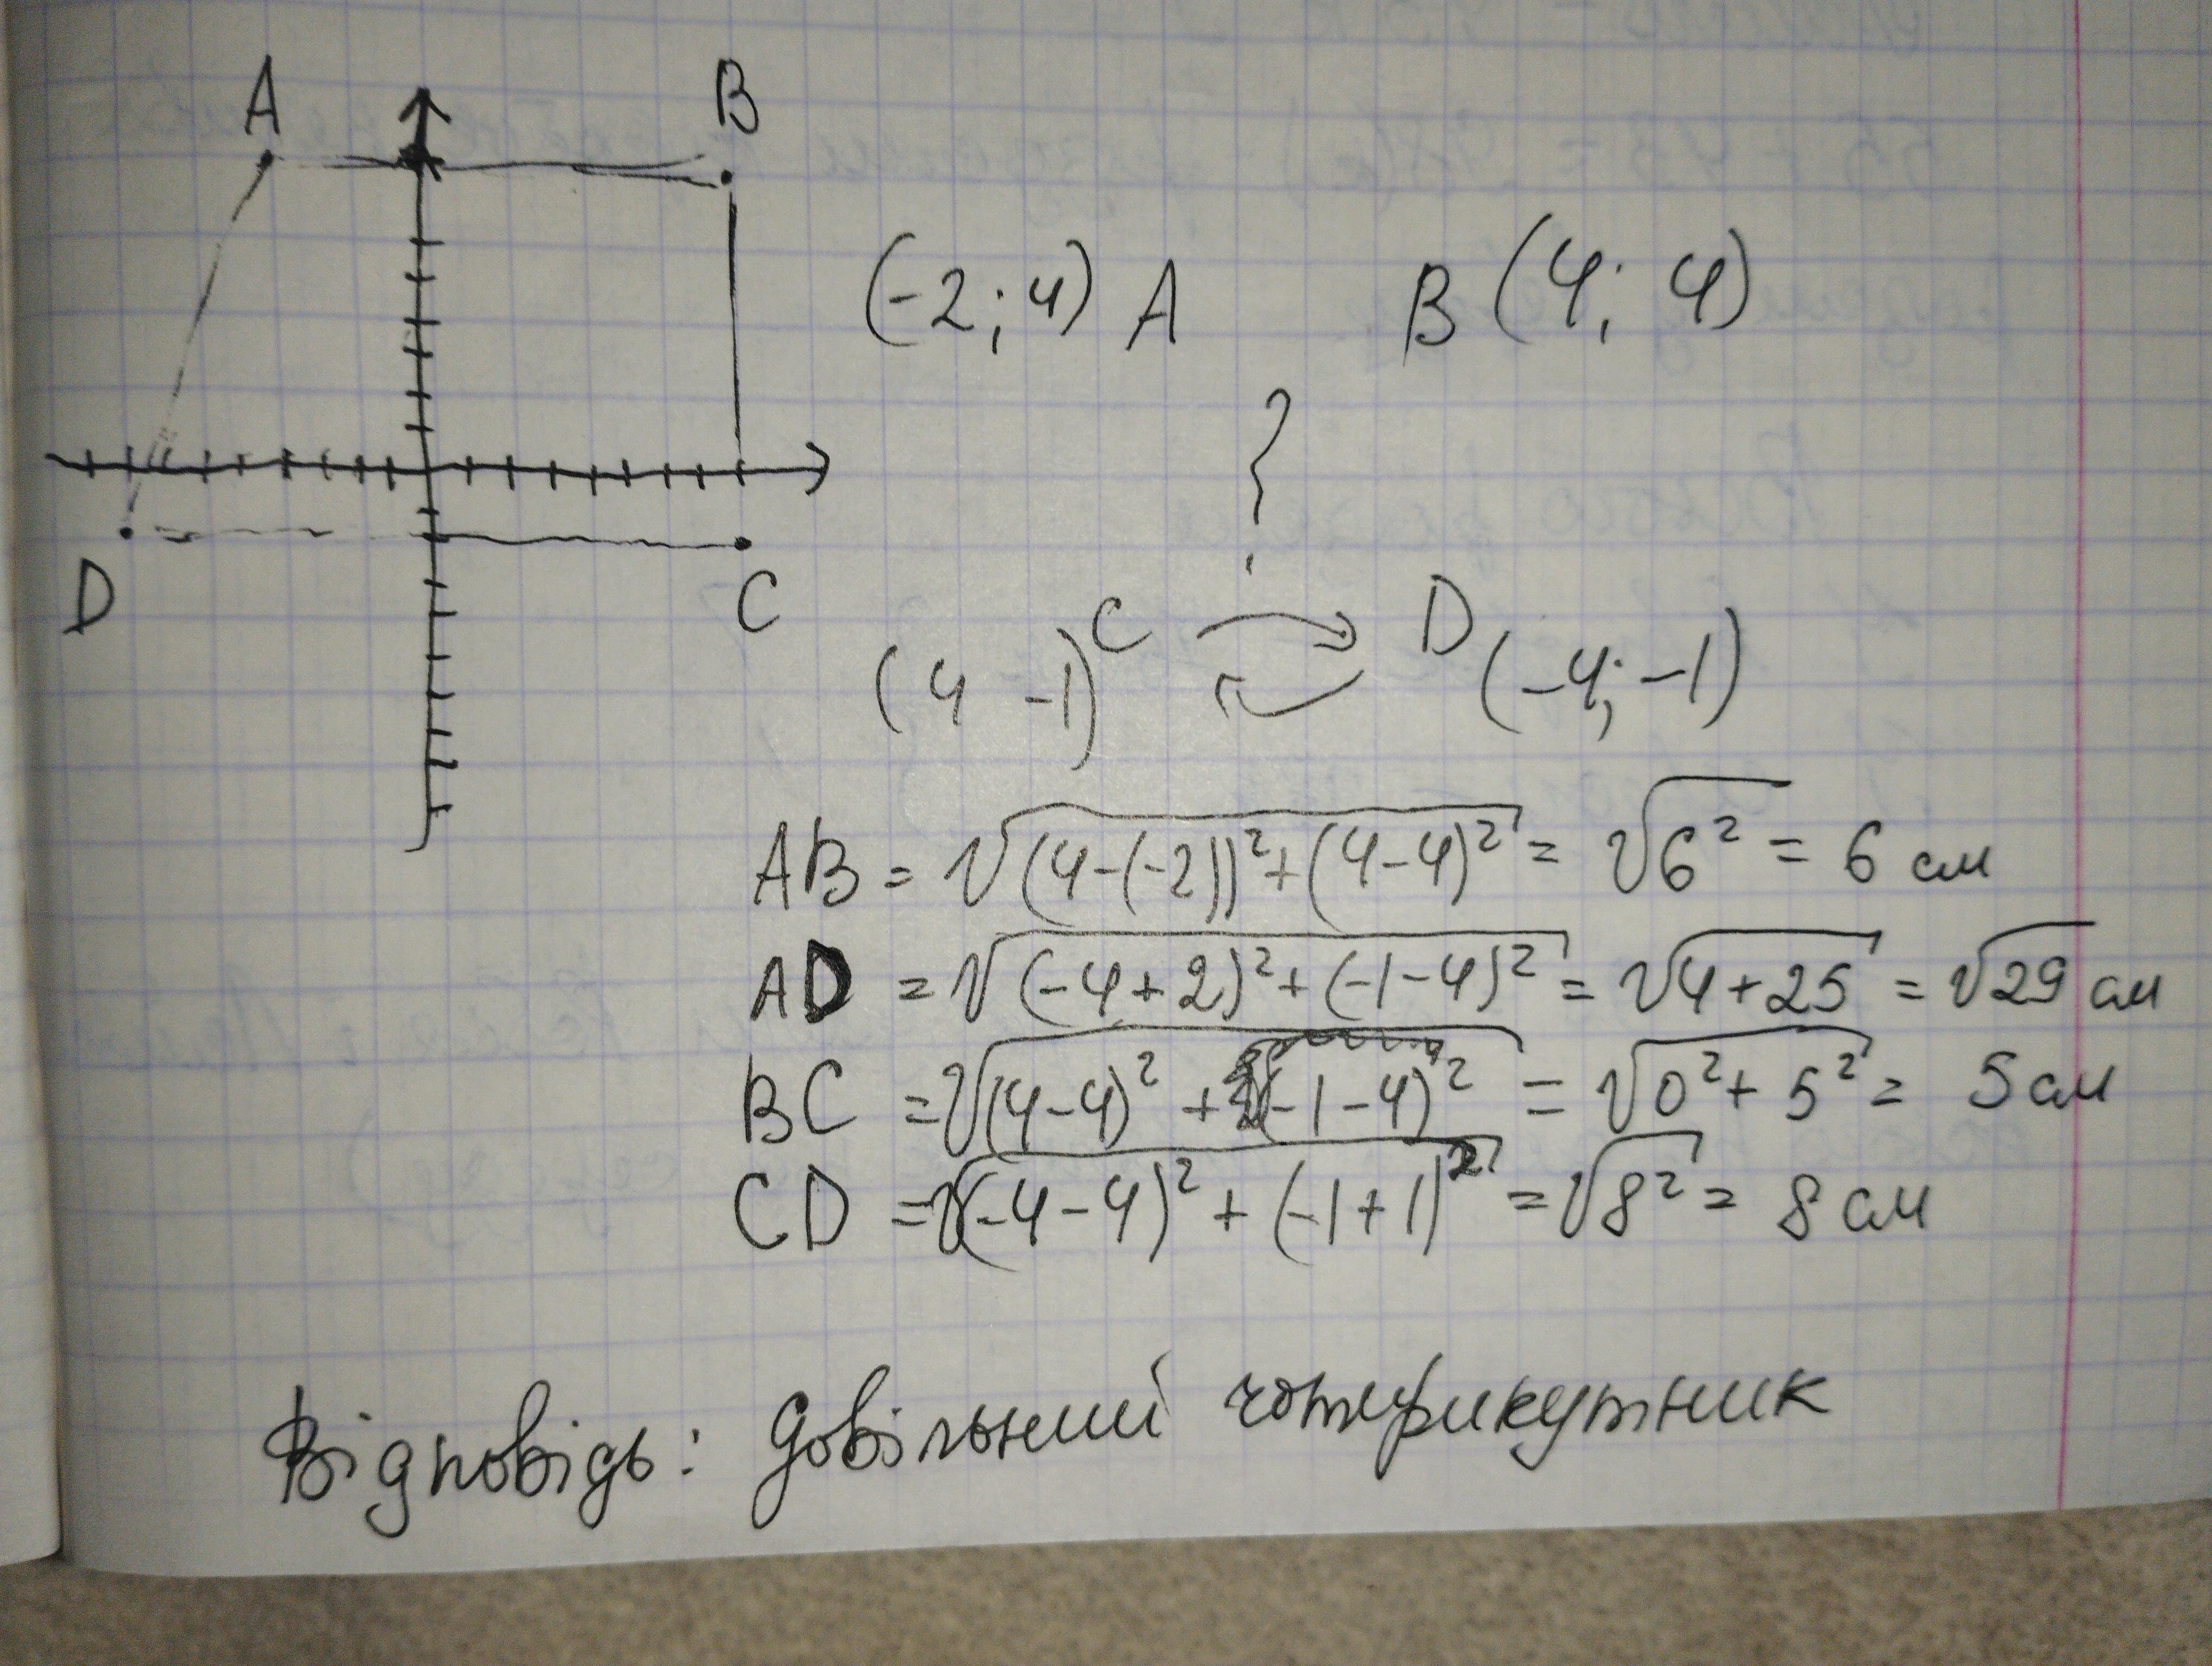 A B
(-2; 4) A B (4; 4)
?
D C
(4 -1) C D (-4; -1)
AB = √(4-(-2))²+(4-4)² = √6² = 6 см
AD = √(-4+2)²+(-1-4)² = √4+25 = √29 см
BC = √(4-4)² + (-1-4)² = √0²+5² = 5 см
CD = √(-4-4)² + (-1+1)² = √8² = 8 см
Відповідь: довільний чотирикутник